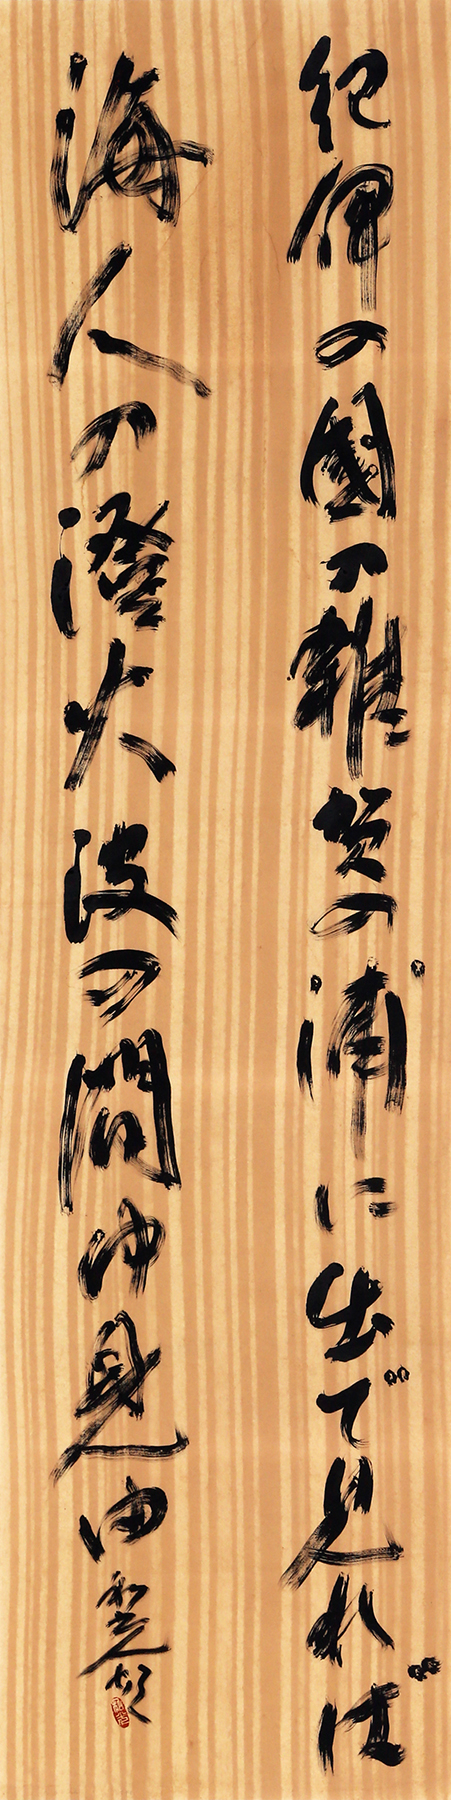 紀伊の國の雜賀の浦に出で見れば
海人の燈火波の間ゆ見ゆ